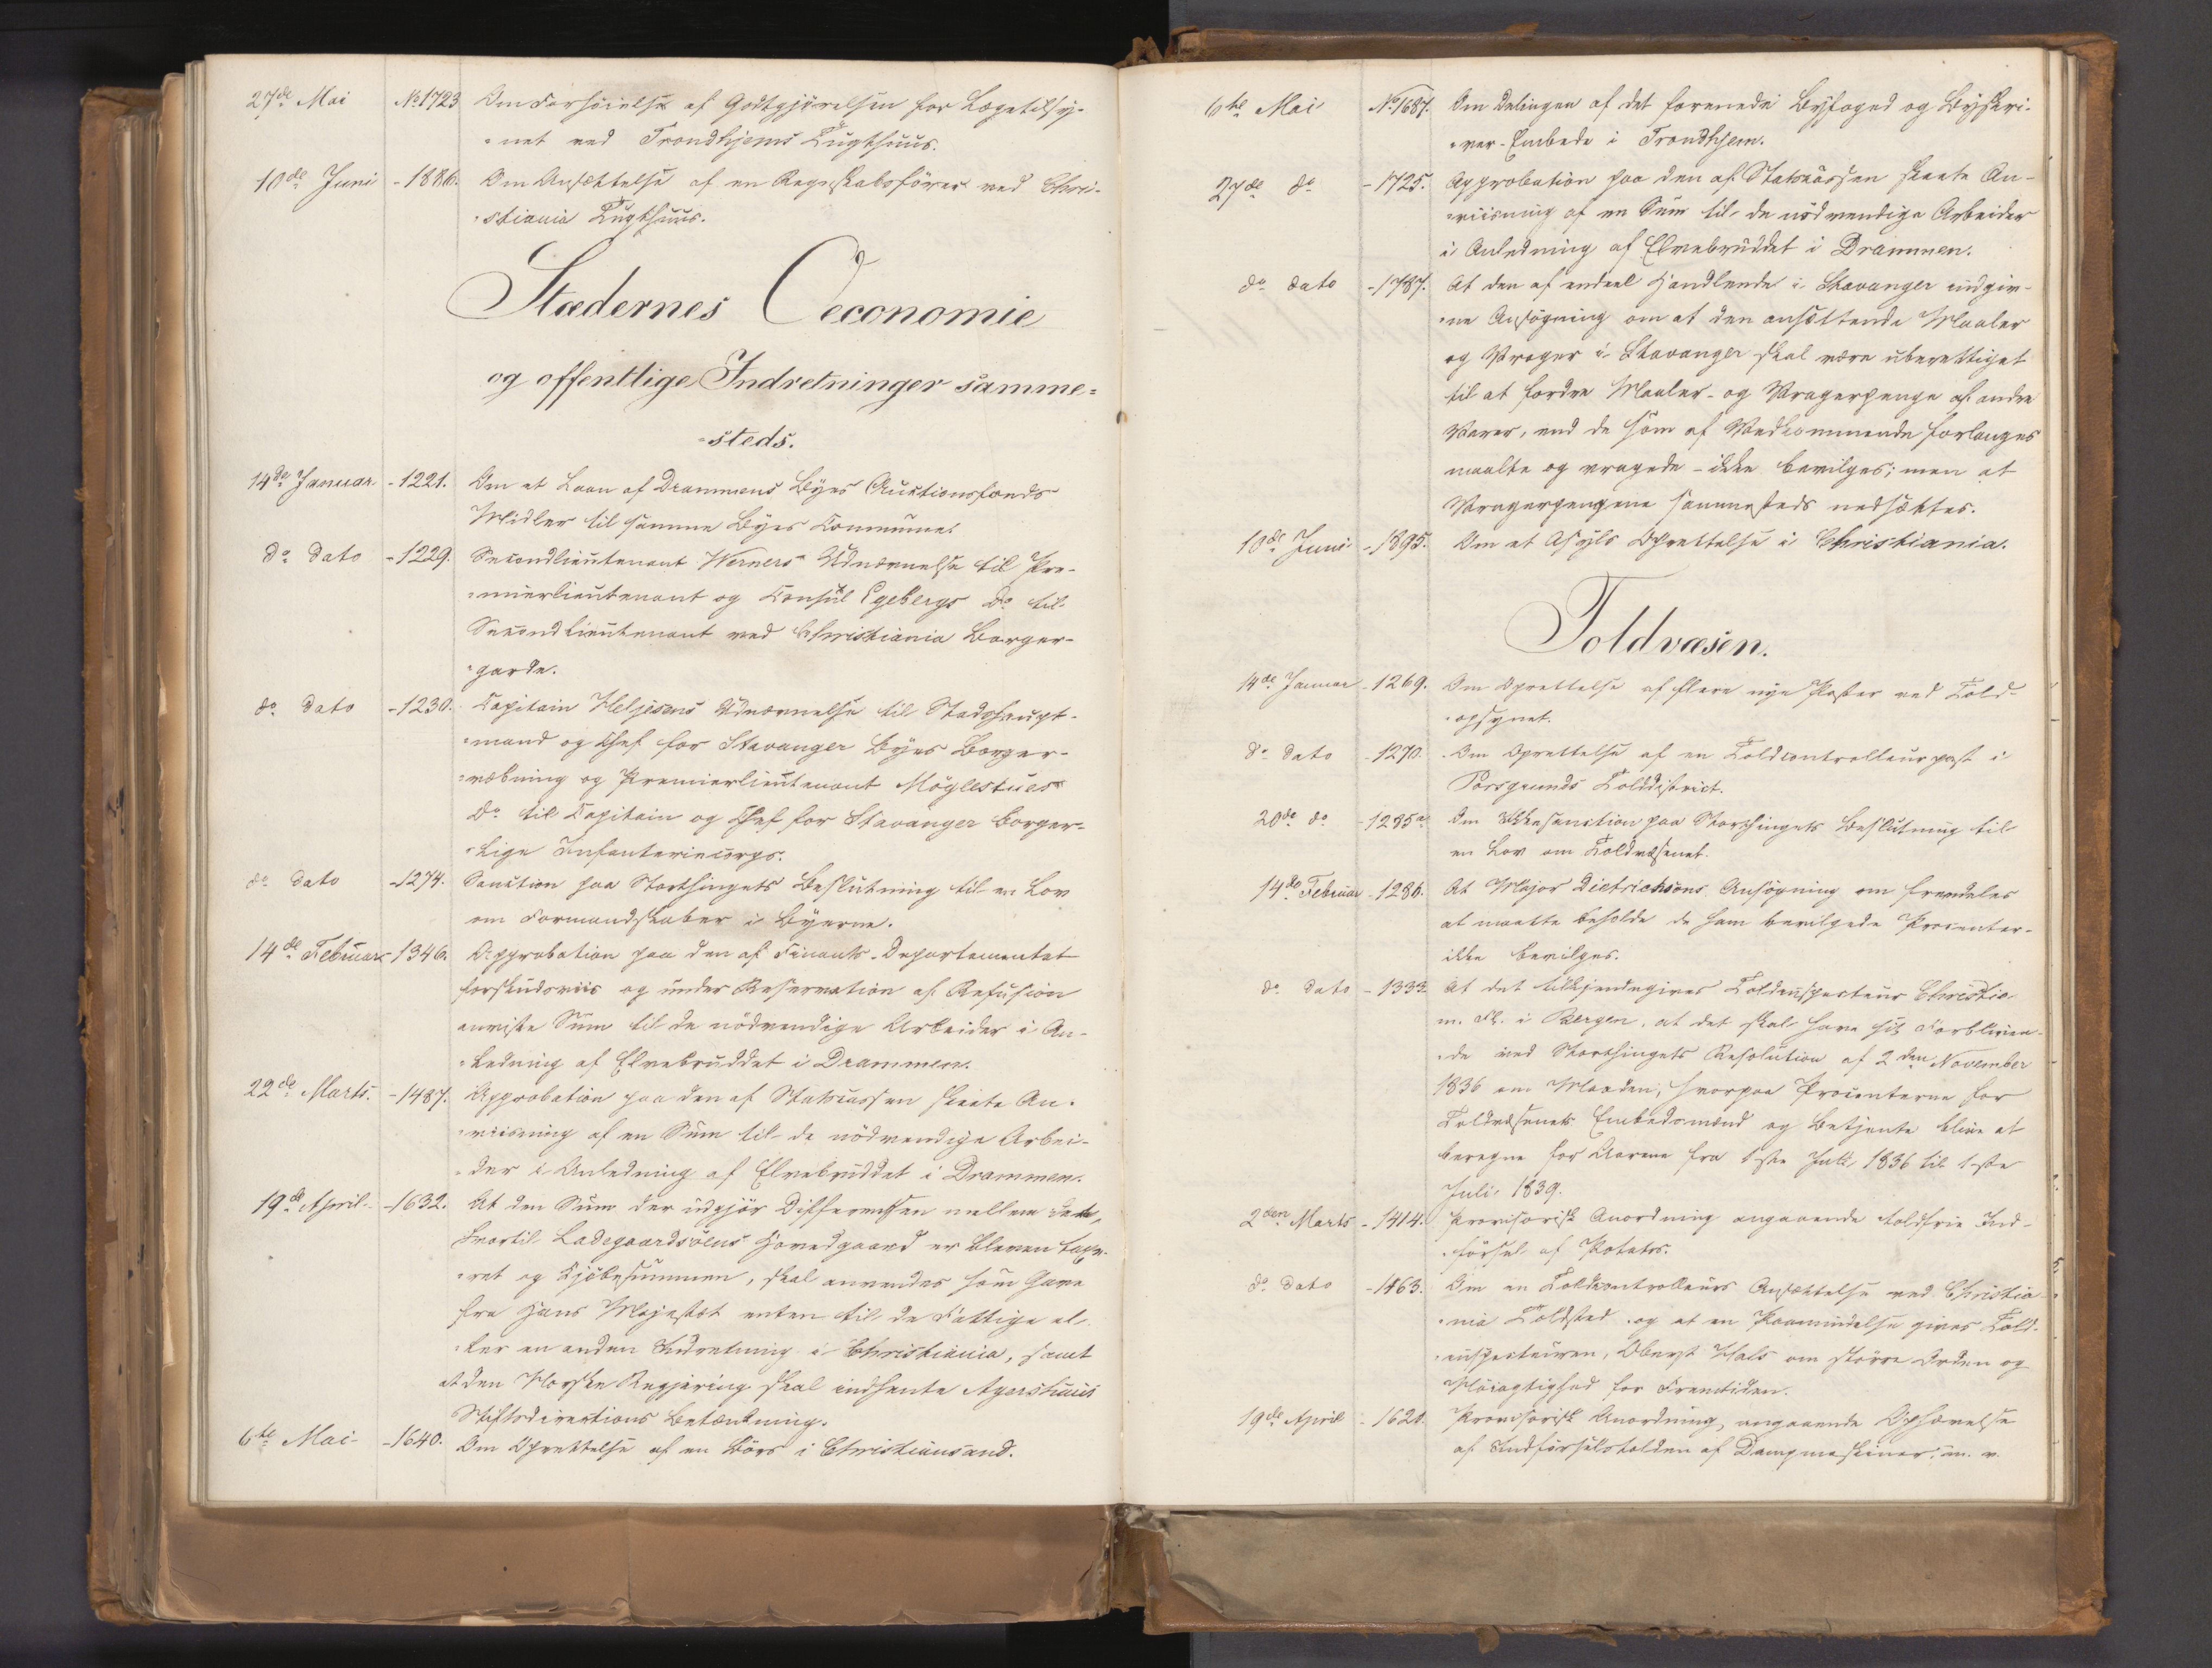 27de Mai No 1723 Om Forhøielse af Godtgjørelsen for Lægetilsy-
net ved Trondhjems Tugthuus.
10de Juni - 1886. Om Ansættelse af en Regnskabsfører ved Chri-
stiania Tugthuus.
Stædernes Oeconomie
og offentlige Indretninger samme-
steds.
14de Januar - 1221. Om et Laan af Drammens Byes Auctionsfonds
Midler til samme Byes Commune.
do dato - 1229. Secondlieutenant Werners Udnævnelse til Pre-
mierlieutenant og Consul Egebergs do til
Secondlieutenant ved Christiania Borger-
garde.
do dato - 1230. Capitain Heljesens Udnævnelse til Stadshaupt-
mand og Chef for Stavanger Byes Borger-
væbning og Premierlieutenant Möglestues
do til Capitain og Chef for Stavanger borger-
lige Infanteriecorps.
do dato - 1274. Sanction paa Storthingets Beslutning til en Lov
om Formandskaber i Byerne.
14de Februar 1346. Approbation paa den af Finants-Departementet
forskudsviis og under Reservation af Refusion
anviste Sum til de nödvendige Arbeider i An-
ledning af Elvebruddet i Drammen.
22de Marts. - 1487. Approbation paa den af Statscassen skeete An-
viisning af en Sum til de nödvendige Arbei-
der i Anledning af Elvebruddet i Drammen.
19de April - 1632. At den Sum der udgjör Differencen mellem det,
hvortil Ladegaardsöens Hovedgaard er bleven taxe-
ret og Kjöbesummen, skal anvendes som Gave
fra Hans Majestæt enten til de Fattige el-
ler en anden Indretning i Christiania, samt
at den Norske Regjering skal indhente Agershuus
Stiftsdirections Betænkning.
6te Mai - 1640. Om Oprettelse af en Börs i Christiansand.
6te Mai No 1687. Om Delingen af det forenede Byfoged og Byskri-
ver-Embede i Trondhjem.
27de do - 1725. Approbation paa den af Statskassen skeete An-
viisning af en Sum til de nödvendige Arbeider
i Anledning af Elvebruddet i Drammen.
do dato - 1787. At den af endeel Handlende i Stavanger indgiv-
ne Ansögning om at den ansættende Maaler
og Vrager i Stavanger skal være uberettiget
til at fordre Maaler- og Vragerpenge af andre
Varer, end de som af Vedkommende forlanges
maalte og vragede - ikke bevilges; men at
Vragerpengene sammesteds nedsættes.
10de Juni - 1895. Om et Asyls Oprettelse i Christiania.
Toldvæsen.
14de Januar - 1269. Om Oprettelse af flere nye Poster ved Told-
opsynet.
do dato - 1270. Om Oprettelse af en Toldcontrolleurpost i
Porsgrunds Tolddistrict.
20de do - 1285a Om Ikkesanction paa Storthingets Beslutning til
en Lov om Toldvæsenet.
14de Februar - 1286. At Major Dietrichsons Ansögning om fremdeles
at maatte beholde de ham bevilgede Procenter
ikke bevilges.
do dato - 1333. At det tilkjendegives Toldinspecteur Christie
m. Fl. i Bergen, at det skal have sit Forblivende
ved Storthingets Resolution af 2den November
1836 om Maaden, hvorpaa Procenterne for
Toldvæsenets Embedsmænd og Betjente blive at
beregne for Aarene fra 1ste Juli 1836 til 1ste
Juli 1839.
2den Marts - 1414. Provisorisk Anordning angaaende toldfrie Ind-
försel af Potatos.
do dato - 1463. Om en Toldcontrolleurs Ansættelse ved Christia-
nia Toldsted og at en Paamindelse gives Told-
inspecteuren, Oberst Hals om större Orden og
Nöiagtighed for Fremtiden.
19de April - 1621. Provisorisk Anordning, angaaende Ophævelse
af Indförselstolden af Dampmaskiner m. v.